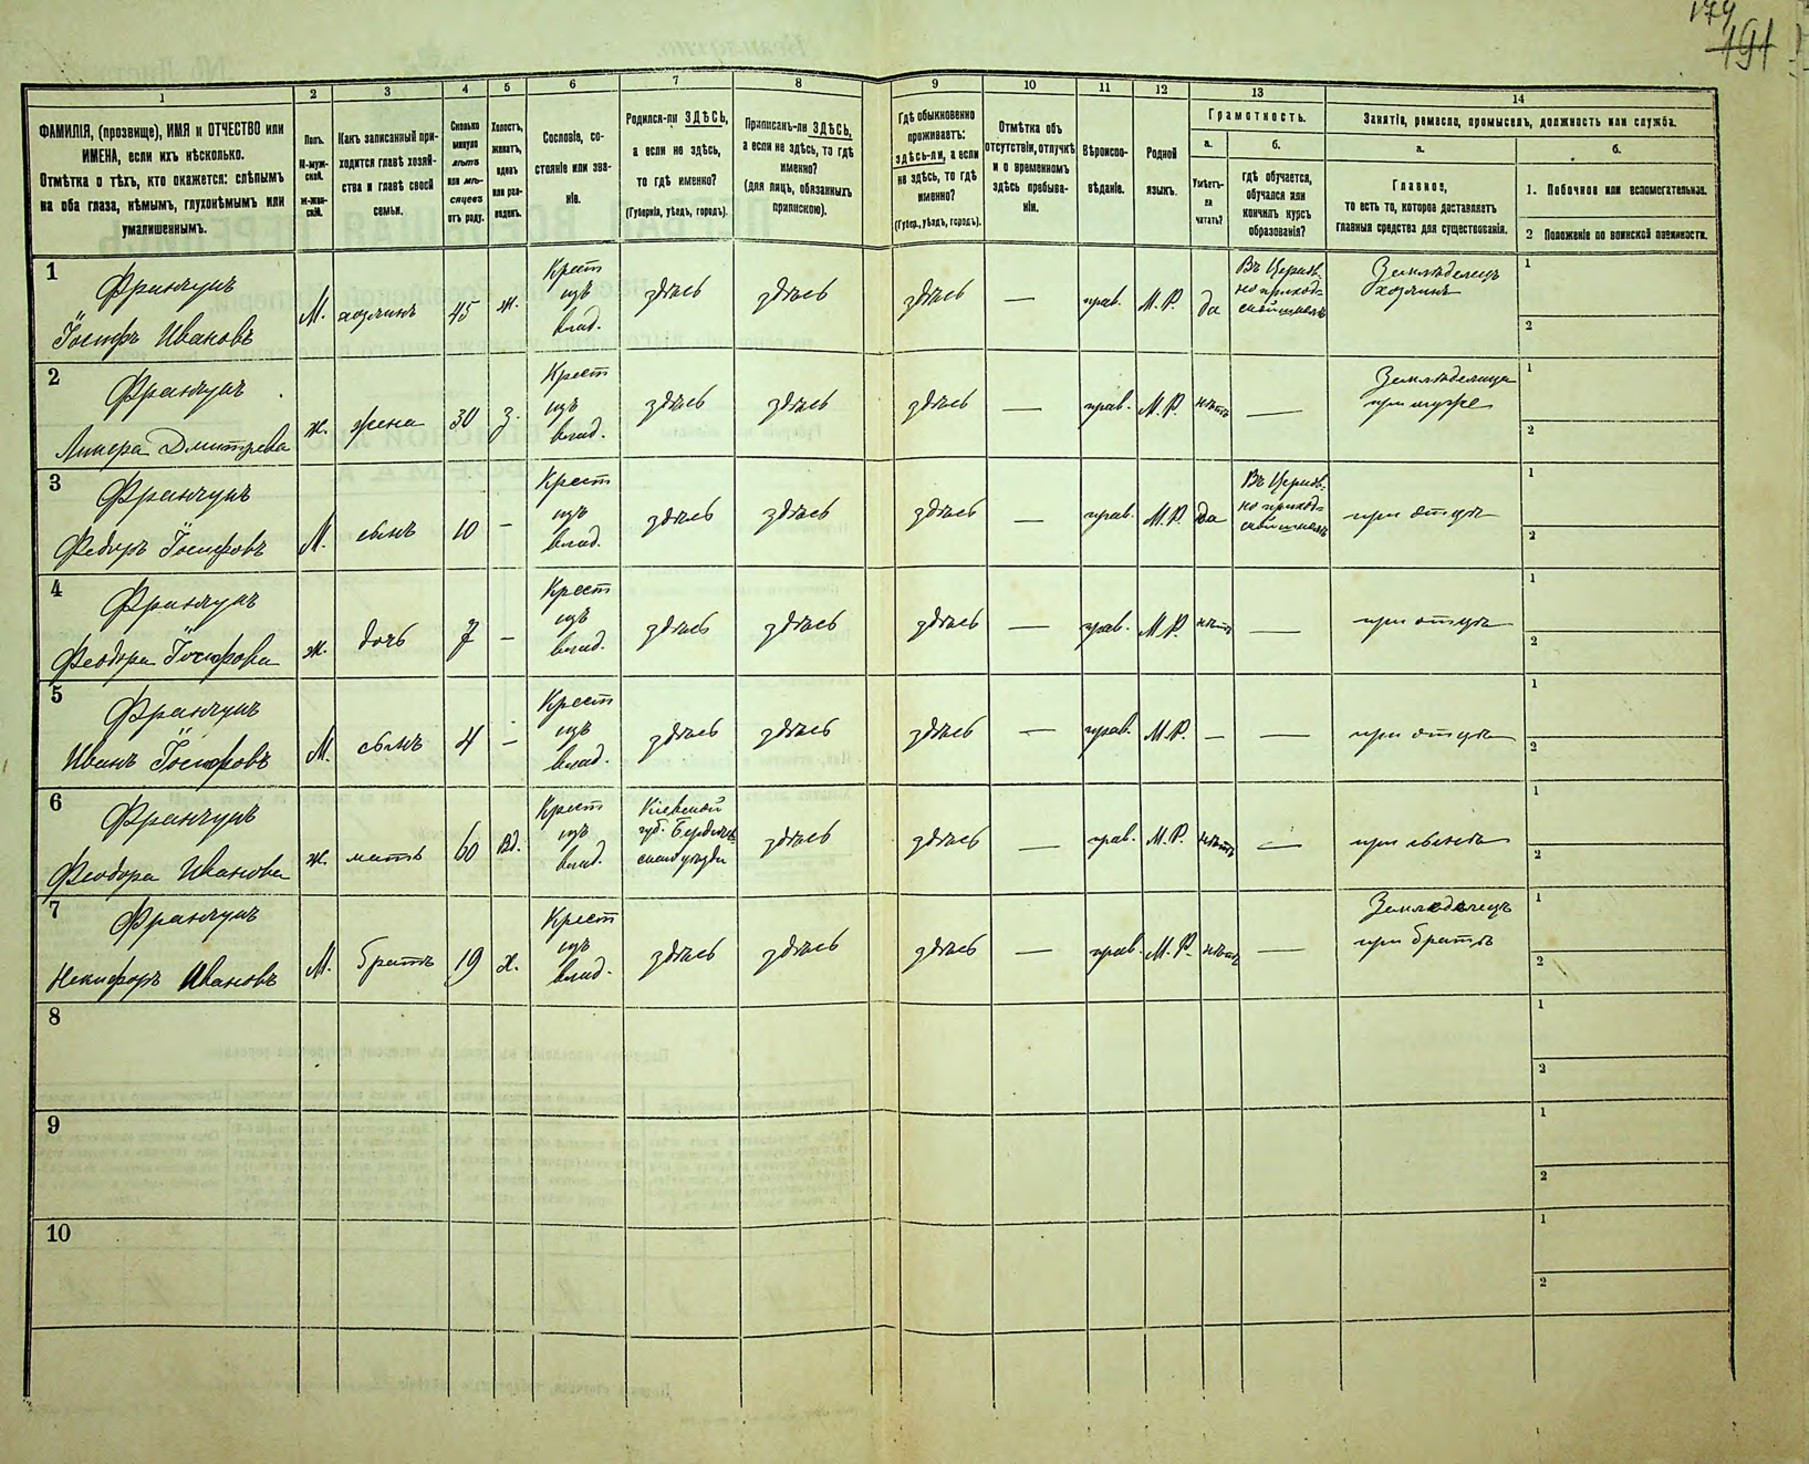 174
191
1
2
3
4
5
6
7
8
9
10
11
12
13
14
ФАМИЛІЯ, (прозвище), ИМЯ и ОТЧЕСТВО или
ИМЕНА, если ихъ нѣсколько.
Отмѣтка о тѣхъ, кто окажется: слѣпымъ
на оба глаза, нѣмымъ, глухонѣмымъ или
умалишеннымъ.
Полъ.
М-муж-
ской.
Ж-жен-
скій.
Какъ записанный при-
ходится главѣ хозяй-
ства и главѣ своей
семьи.
Сколько
минуло
лѣтъ
или мѣ-
сяцевъ
отъ роду.
Холостъ,
женатъ,
вдовъ
или раз-
веденъ.
Сословіе, со-
стояніе или зва-
ніе.
Родился-ли ЗДѢСЬ,
а если не здѣсь,
то гдѣ именно?
(Губернія, уѣздъ, городъ).
Приписанъ-ли ЗДѢСЬ,
а если не здѣсь, то гдѣ
именно?
(для лицъ, обязанныхъ
припискою).
Гдѣ обыкновенно
проживаетъ:
здѣсь-ли, а если
не здѣсь, то гдѣ
именно?
(Губер., уѣздъ, городъ).
Отмѣтка объ
отсутствіи, отлучкѣ
и о временномъ
здѣсь пребыва-
ніи.
Вѣроиспо-
вѣданіе.
Родной
языкъ.
Грамотность.
а.
Умѣетъ-
ли
читать?
б.
гдѣ обучается,
обучался или
кончилъ курсъ
образованія?
Занятіе, ремесло, промыселъ, должность или служба.
а.
Главное,
то есть то, которое доставляетъ
главныя средства для существованія.
б.
1. Побочное или вспомогательное.
2 Положеніе по воинской повинности.
1
Франчукъ
Іосифъ Ивановъ
М. хозяинъ 45 ж.
Крест
изъ
влад.
здѣсь здѣсь здѣсь — прав. М.Р. да
Въ Церков-
но приход-
ской школѣ
Земледѣлецъ
хозяинъ
1
2
2
Франчукъ
Дмитрева
ж. жена 30 з.
Крест
изъ
влад.
здѣсь здѣсь здѣсь — прав. М.Р. нѣтъ —
Земледѣлица
при мужѣ
1
2
3
Франчукъ
Федоръ Іосифовъ
М. сынъ 10 —
Крест
изъ
влад.
здѣсь здѣсь здѣсь — прав. М.Р. да
Въ Церков-
но приход-
ской школѣ
при отцѣ
1
2
4
Франчукъ
Феодора Іосифова
ж. дочь 7 —
Крест
изъ
влад.
здѣсь здѣсь здѣсь — прав. М.Р. нѣтъ —
при отцѣ
1
2
5
Франчукъ
Иванъ Іосифовъ
М. сынъ 4 —
Крест
изъ
влад.
здѣсь здѣсь здѣсь — прав. М.Р. — —
при отцѣ
1
2
6
Франчукъ
Феодора Иванова
ж. мать 60 вд.
Крест
изъ
влад.
Кіевской
губ. Бердичев-
скаго уѣзда
здѣсь здѣсь — прав. М.Р. нѣтъ —
при сынѣ
1
2
7
Франчукъ
Никифоръ Ивановъ
М. братъ 19 х.
Крест
изъ
влад.
здѣсь здѣсь здѣсь — прав. М.Р. нѣтъ —
Земледелецъ
при братѣ
1
2
8
1
2
9
1
2
10
1
2